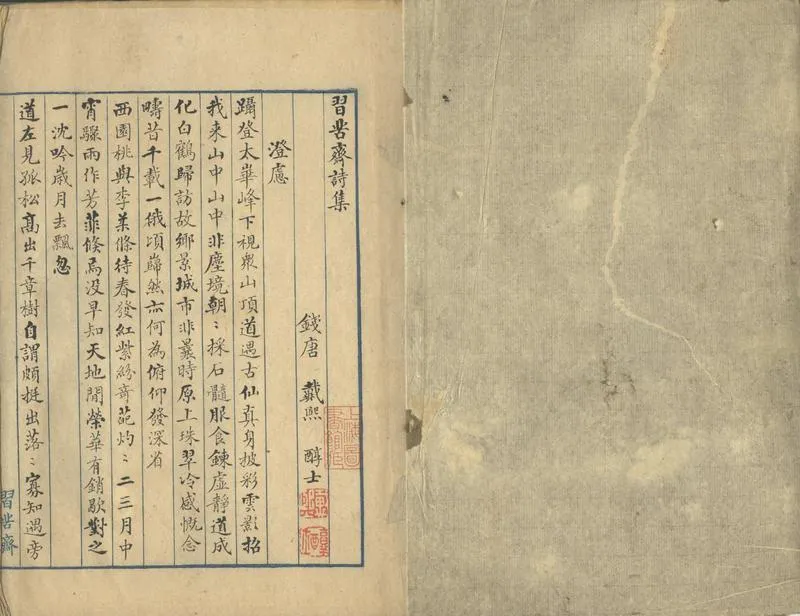 習苦齋詩集
錢唐 戴熙 醇士
澄慮
躡登太華峰下視衆山頂道遇古仙真身披彩雲影招
我來山中山中非塵境朝〻採石髓服食鍊虛靜道成
化白鶴歸訪故鄉景城市非曩時原上珠翠冷感慨念
疇昔千載一俄頃巋然亦何為俯仰發深省
西園桃與李柔條待春發紅紫紛奇葩灼〻二三月中
宵驟雨作芳菲倏焉没早知天地閒榮華有銷歇對之
一沈吟歲月去飄忽
道左見孤松髙出千章樹自謂頗挺出落〻寡知遇旁
習苦齋
上海圖書館藏